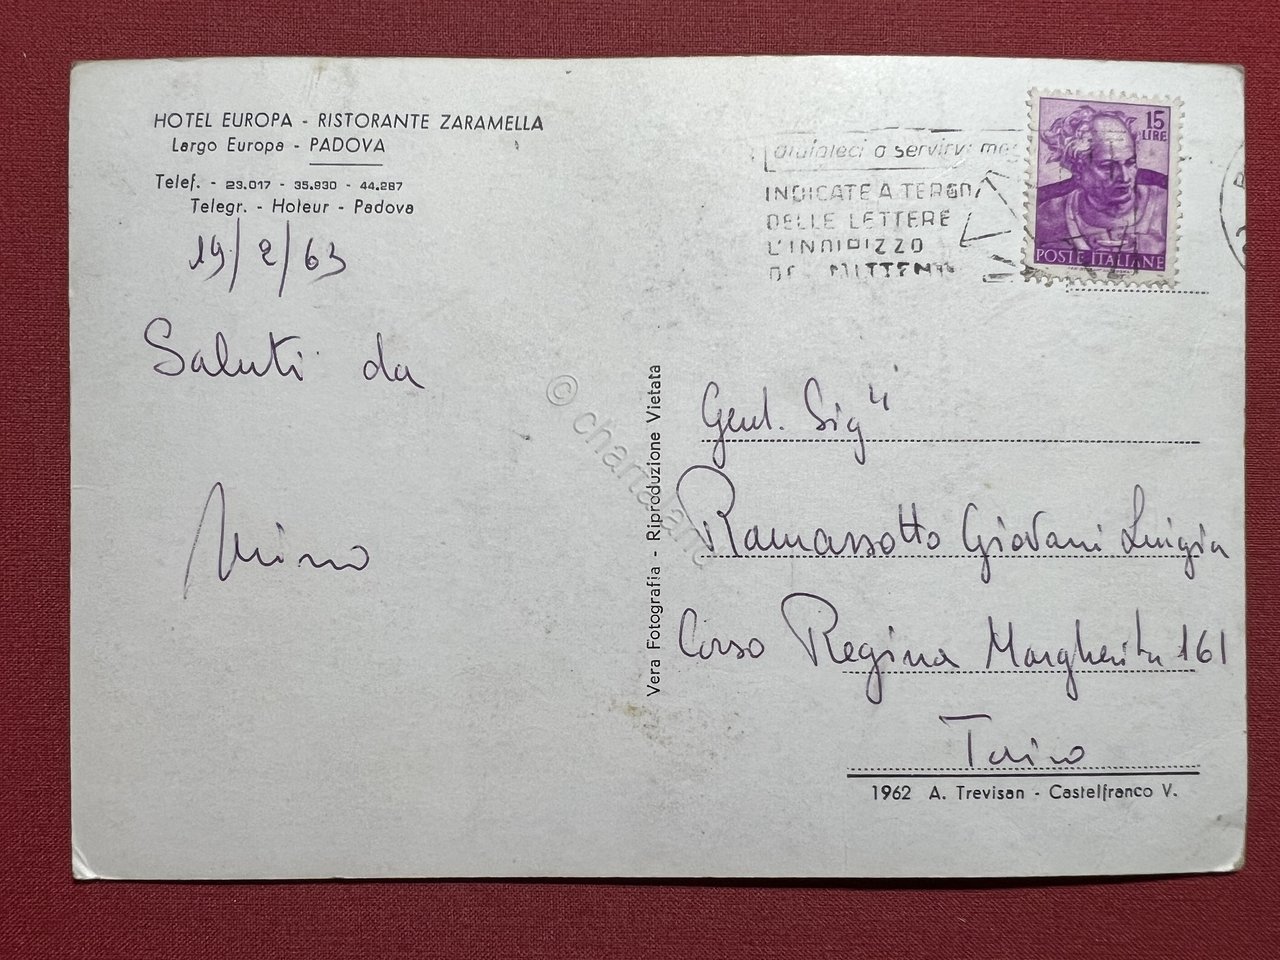 HOTEL EUROPA - RISTORANTE ZARAMELLA
Largo Europa - PADOVA
Telef. - 23.017 - 35.930 - 44.287
Telegr. - Hoteur - Padova
19/2/63
Saluti da
Mino
Vera Fotografia - Riproduzione Vietata
aiutateci a servirvi me
INDICATE A TERGO
DELLE LETTERE
L'INDIRIZZO
DEL MITTENTE
15
LIRE
POSTE ITALIANE
Gent. Sig"
Ramassotto Giovani Luigia
Corso Regina Margherita 161
Torino
1962 A. Trevisan - Castelfranco V.
© charta